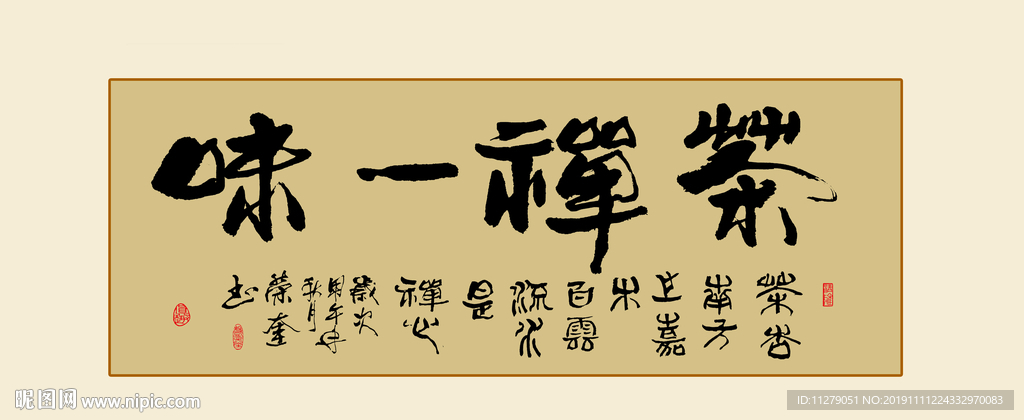 茶禪一味
茶者
南方
之嘉
木
白雲
流水
是
禪心
歲次
甲午年
秋月
荣奎
书
昵图网 www.nipic.com
ID:11279051 NO:20191111224332970083